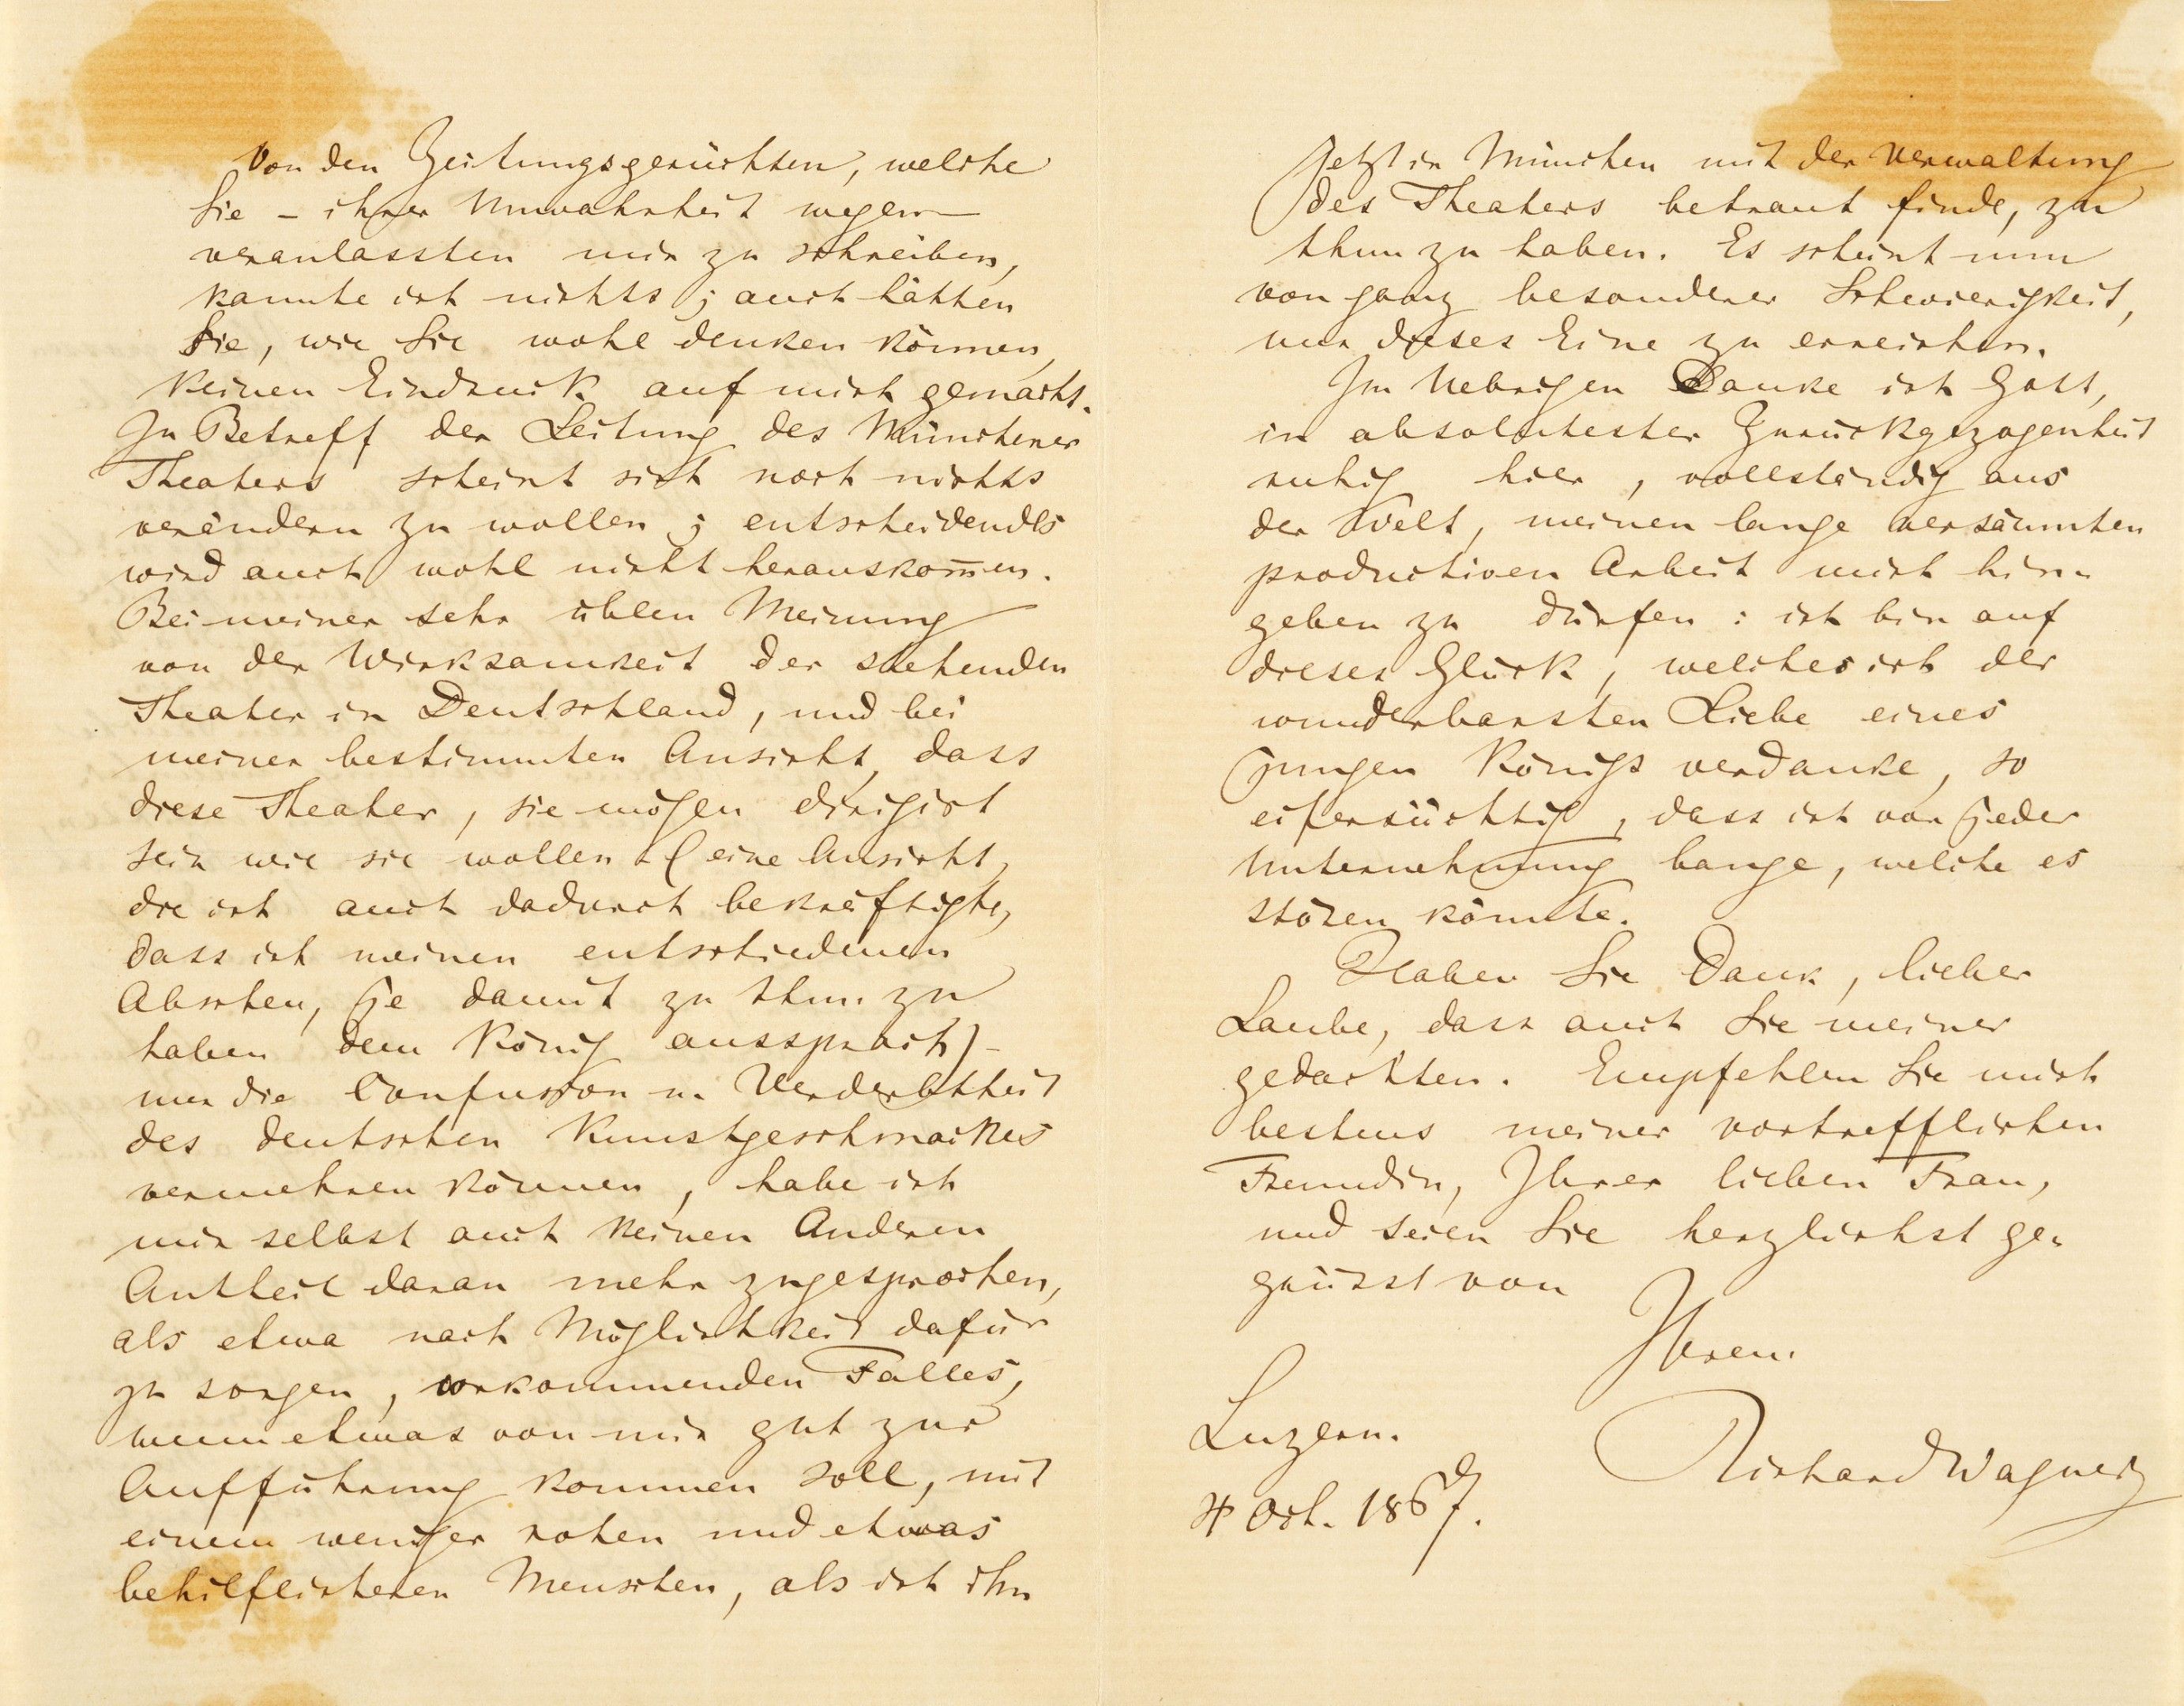 Von den Zeitungsgerüchten, welche
Sie – ihrer Unwahrheit wegen –
veranlassten mir zu schreiben,
kannte ich nichts; auch hätten
Sie, wie Sie wohl denken können,
keinen Eindruck auf mich gemacht.
In Betreff der Leitung des Münchener
Theaters scheint sich noch nichts
verändern zu wollen; entscheidendes
wird auch wohl nicht herauskom̅en.
Bei meiner sehr üblen Meinung
von der Wirksamkeit der stehenden
Theater in Deutschland, und bei
meiner bestimmten Ansicht, dass
diese Theater, sie mögen dirigirt
sein wie sie wollen (eine Ansicht,
die ich auch dadurch bekräftigte,
dass ich meinen entschiedenen
Abscheu, je damit zu thun zu
haben dem König aussprach) –
nur die Confusion u. Verderbtheit
des deutschen Kunstgeschmackes
vermehren können, habe ich
mir selbst auch keinen Anderen
Antheil daran mehr zugesprochen,
als etwa nach Möglichkeit dafür
zu sorgen, vorkommenden Falles,
wenn etwas von mir gut zur
Aufführung kommen soll, mit
einem weniger rohen und etwas
behilflicheren Menschen, als ich ihn
jetzt in München mit der Verwaltung
des Theaters betraut finde, zu
thun zu haben. Es scheint nun
von ganz besonderer Schwierigkeit,
nur dieses Eine zu erreichen.
Im Uebrigen Danke ich Gott,
in absolutester Zurückgezogenheit
ruhig hier, vollständig aus
der Welt, meinen lange versäumten
productiven Arbeit mich hin-
geben zu dürfen: ich bin auf
dieses Glück, welches ich der
wunderbarsten Liebe eines
jungen Königs verdanke, so
eifersüchtig, dass ich vor jeder
Unternehmung bange, welche es
stören könnte.
Haben Sie Dank, lieber
Laube, dass auch Sie meiner
gedachten. Empfehlen Sie mich
bestens meiner vortrefflichen
Freundin, Ihrer lieben Frau,
und seien Sie herzlichst ge-
grüsst von
Ihrem
Richard Wagner
Luzern.
4 Oct. 1867.